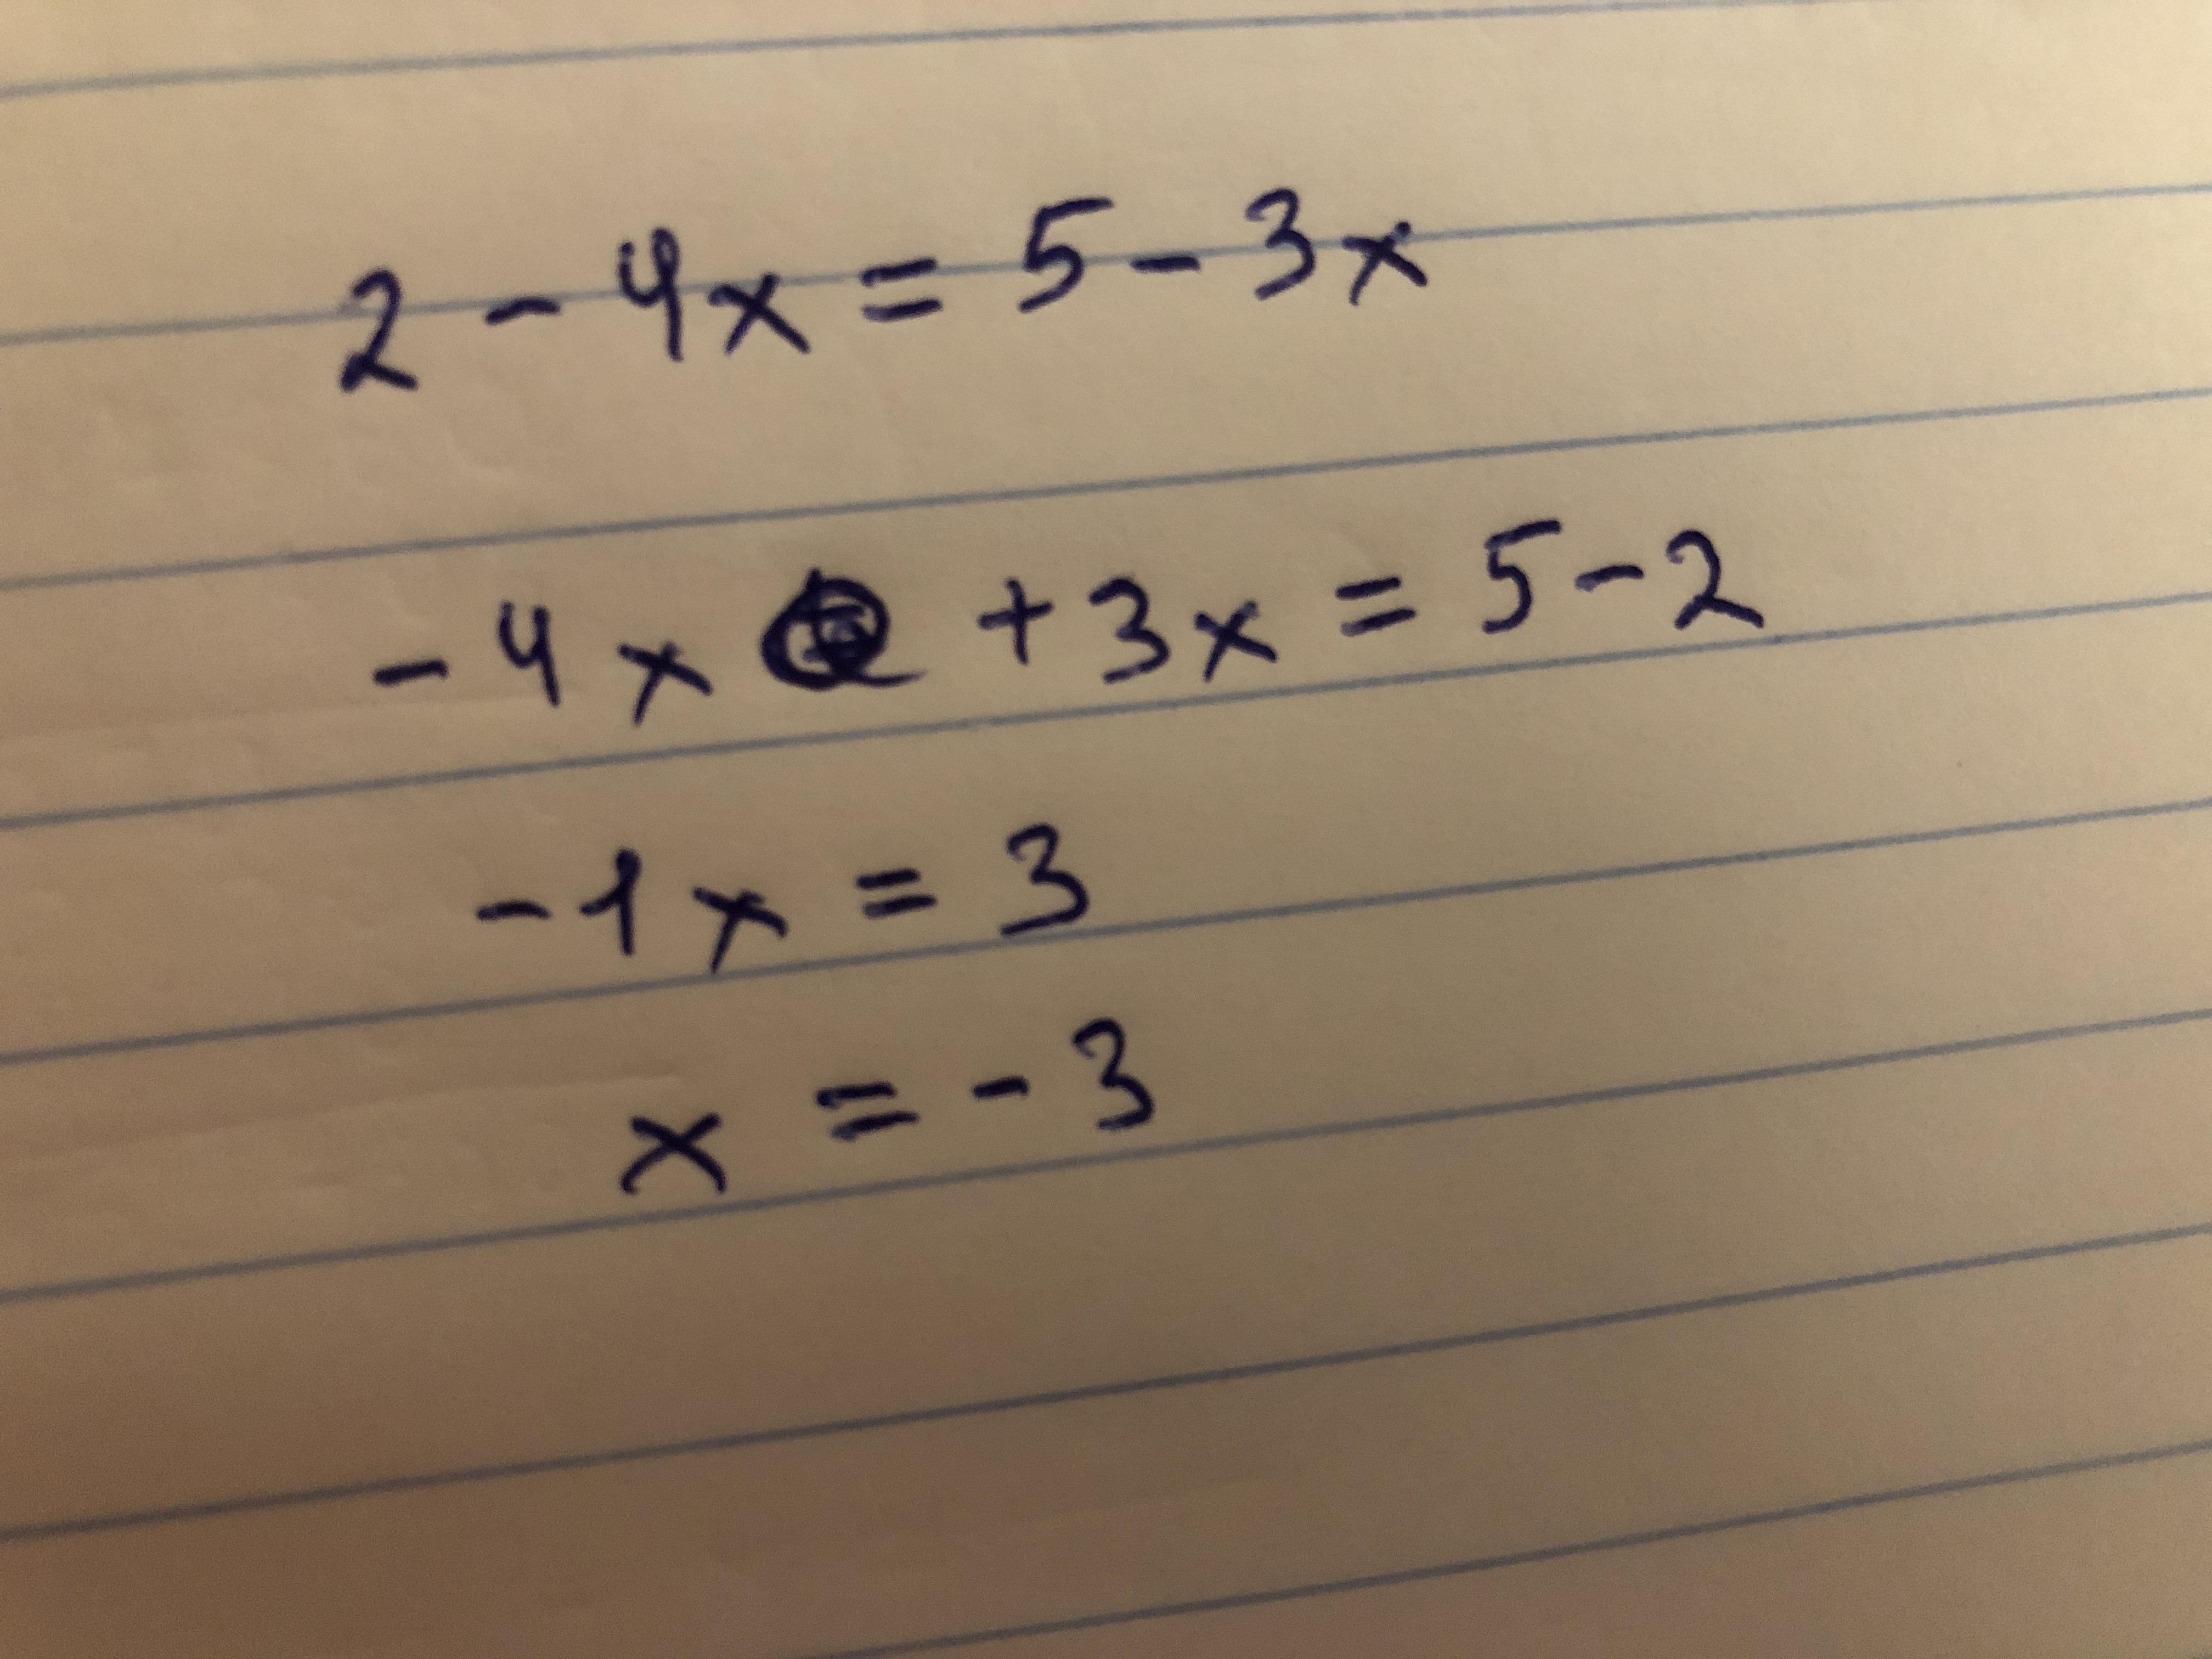 2 - 4x = 5 - 3x
-4x + 3x = 5 - 2
-1x = 3
x = -3